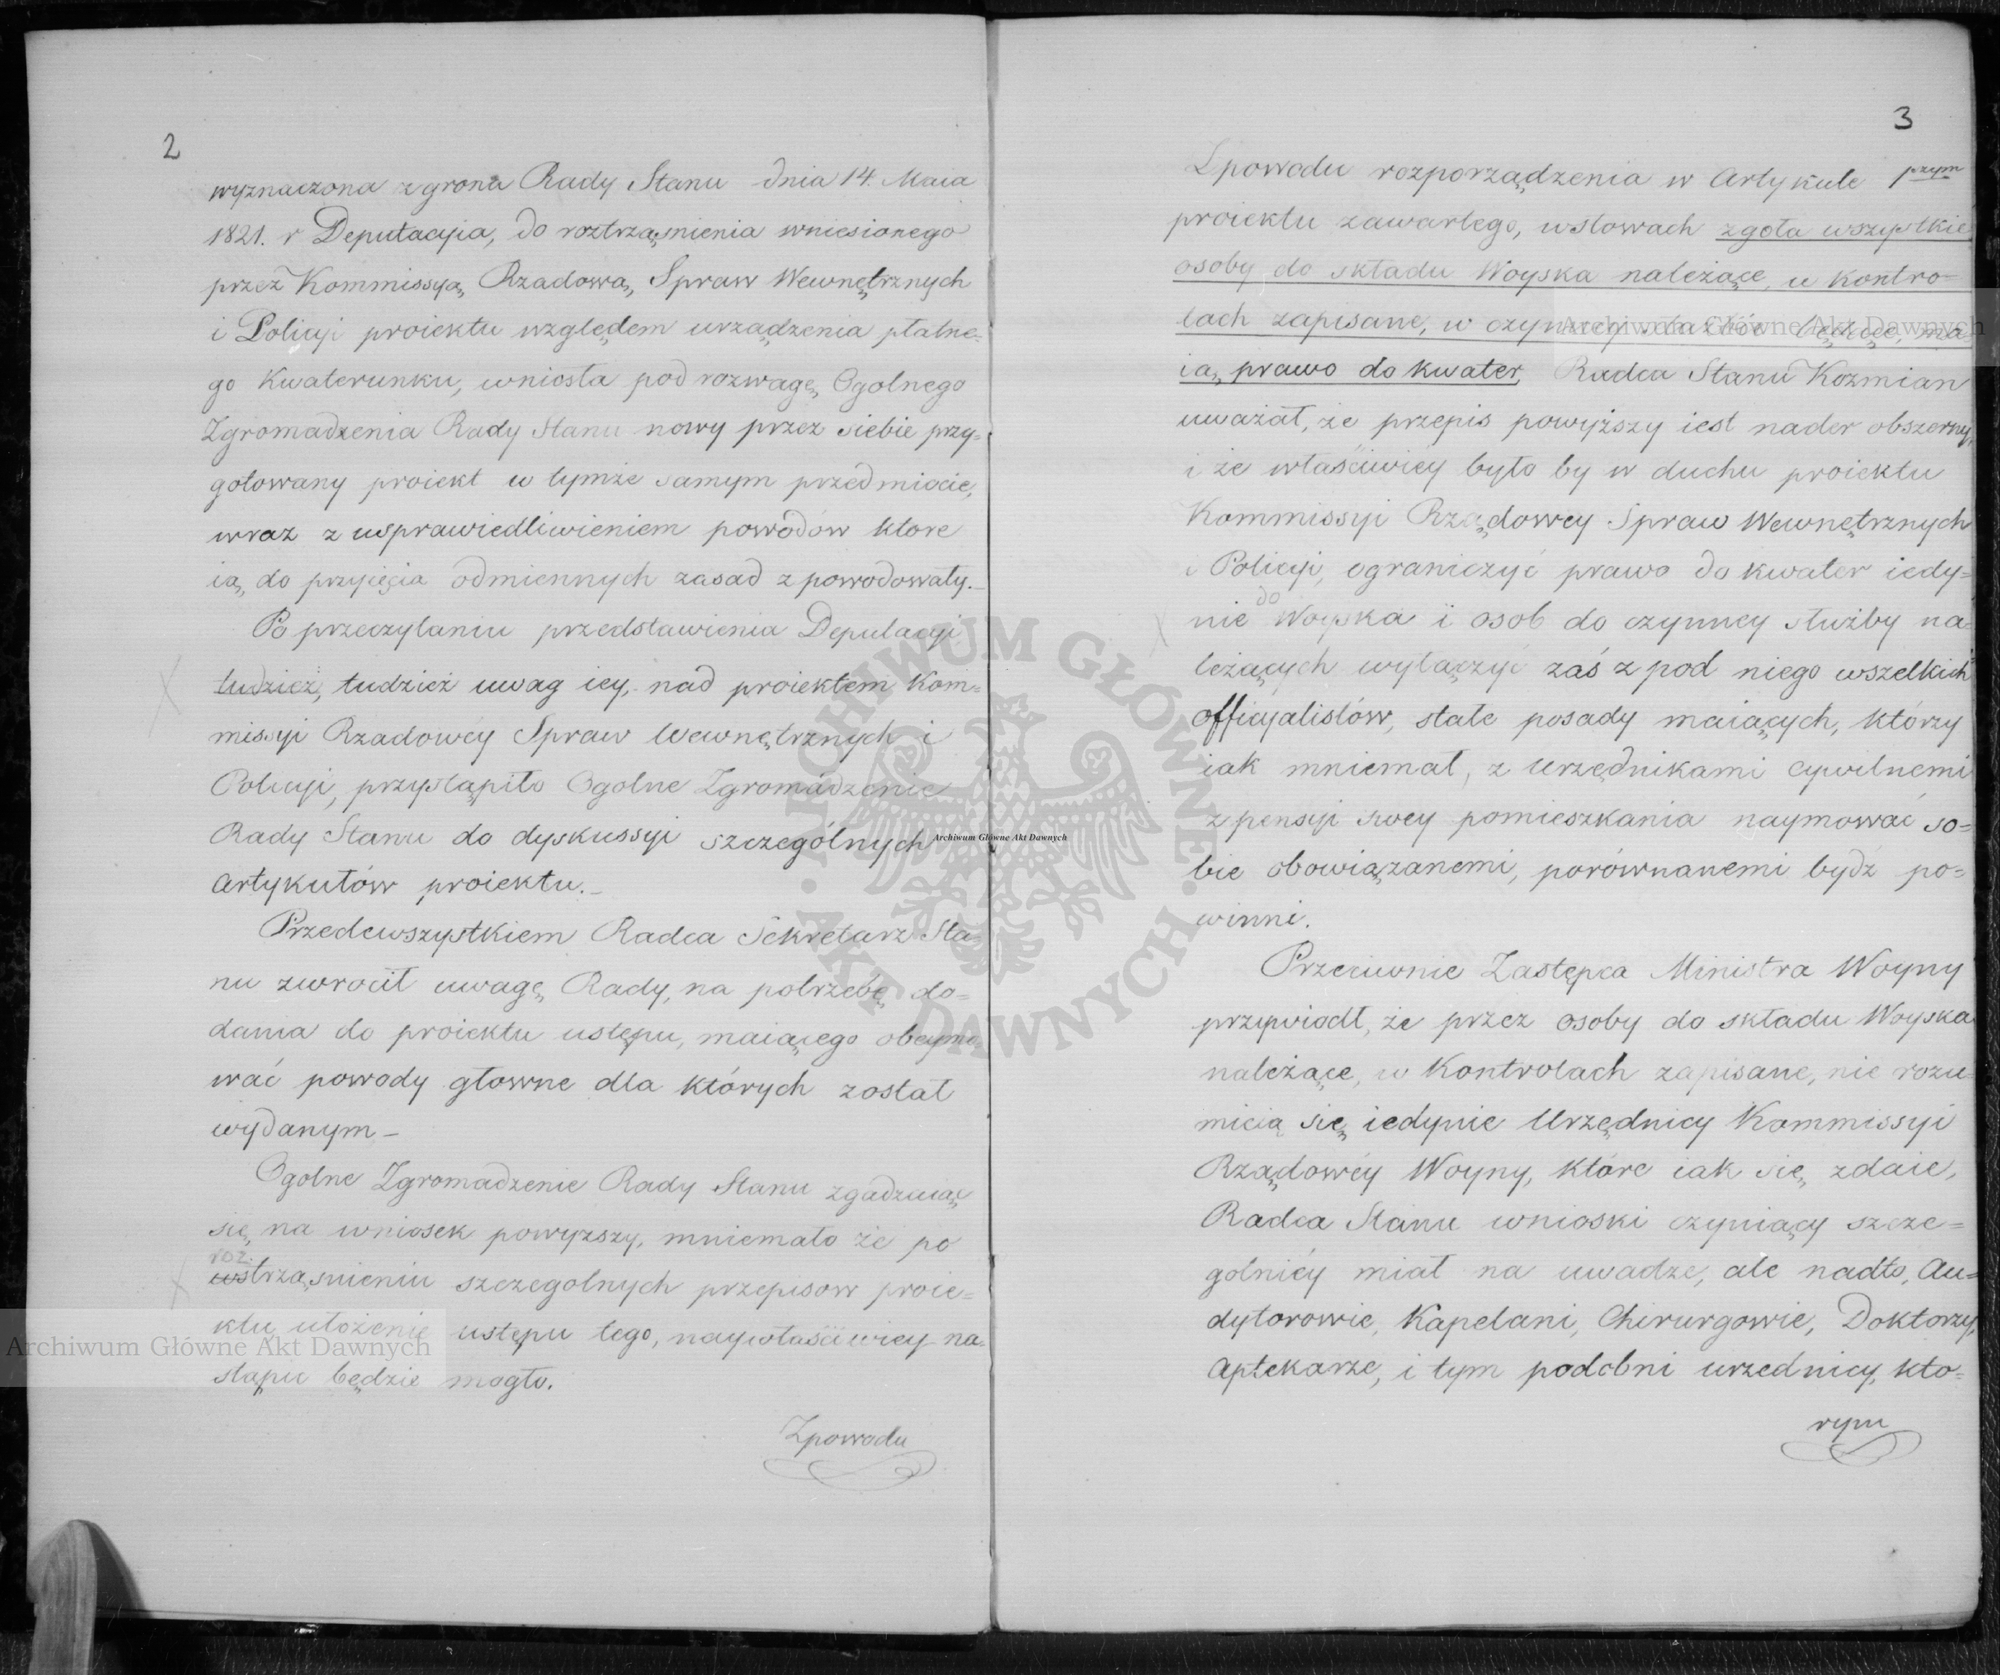 2
wyznaczona z grona Rady Stanu dnia 14. Maia
1821. r Deputacyia, do roztrząsnienia wniesionego
przez Kommissyą Rządową Spraw Wewnętrznych
i Policyi proiektu względem urządzenia płatne=
go Kwaterunku, wniosła pod rozwagę Ogolnego
Zgromadzenia Rady Stanu nowy przez siebie przy=
gotowany proiekt w tymże samym przedmiocie,
wraz z usprawiedliwieniem powodów ktore
ią do przyięcia odmiennych zasad z powodowały.—
Po przeczytaniu przedstawienia Deputacyi
tudzież, tudzież uwag iey, nad proiektem Kom=
missyi Rządowéy Spraw Wewnętrznych i
Policyi, przystąpiło Ogolne Zgromadzenie
Rady Stanu do dyskussyi szczególnych
artykułów proiektu.—
Przedewszystkiem Radca Sekretarz Sta=
nu zwrocił uwagę Rady, na potrzebę do=
dania do proiektu ustępu, maiącego obeymo
wać powody głowne dla których został
wydanym—
Ogolne Zgromadzenie Rady Stanu zgadzaiąc
się na wniosek powyższy, mniemało że po
roz.
wstrząsnieniu szczegolnych przepisow proie=
ktu ułożenie ustępu tego, naywłaściwiey na=
stąpić będzie mogło.
Zpowodu
3
Zpowodu rozporządzenia w Artykule 1szym
proiektu zawartego, w słowach zgoła wszystkie
osoby do składu Woyska należące, w kontro=
lach zapisane, w czynney służbie będące, ma=
ią prawo do kwater, Radca Stanu Kozmian
uważał, że przepis powyższy iest nader obszerny,
i że właściwiey było by w duchu proiektu
Kommissyi Rządowey Spraw Wewnętrznych
i Policyi, ograniczyć prawo do kwater iedy=
do
nie Woyska i osob do czynney służby na=
leżących wyłączyć zaś z pod niego wszelkich
officyalistów, stałe posady maiących, którzy
iak mniemał, z urzędnikami cywilnemi
z pensyi swey pomieszkania naymować so=
bie obowiązanemi, porównanemi bydź po=
winni.
Przeciwnie Zastępca Ministra Woyny
przywiodł, że przez osoby do składu Woyska
należące, w Kontrolach zapisane, nie rozu=
mieią się iedynie Urzędnicy Kommissyi
Rządowéy Woyny, które iak się zdaie,
Radca Stanu wnioski czyniący szcze=
golniéy miał na uwadze, ale nadto, Au=
dytorowie, Kapelani, Chirurgowie, Doktorzy,
Aptekarze, i tym podobni urzednicy, kto=
rym
Archiwum Główne Akt Dawnych
Archiwum Główne Akt Dawnych
Archiwum Główne Akt Dawnych
ARCHIWUM GŁÓWNE AKT DAWNYCH